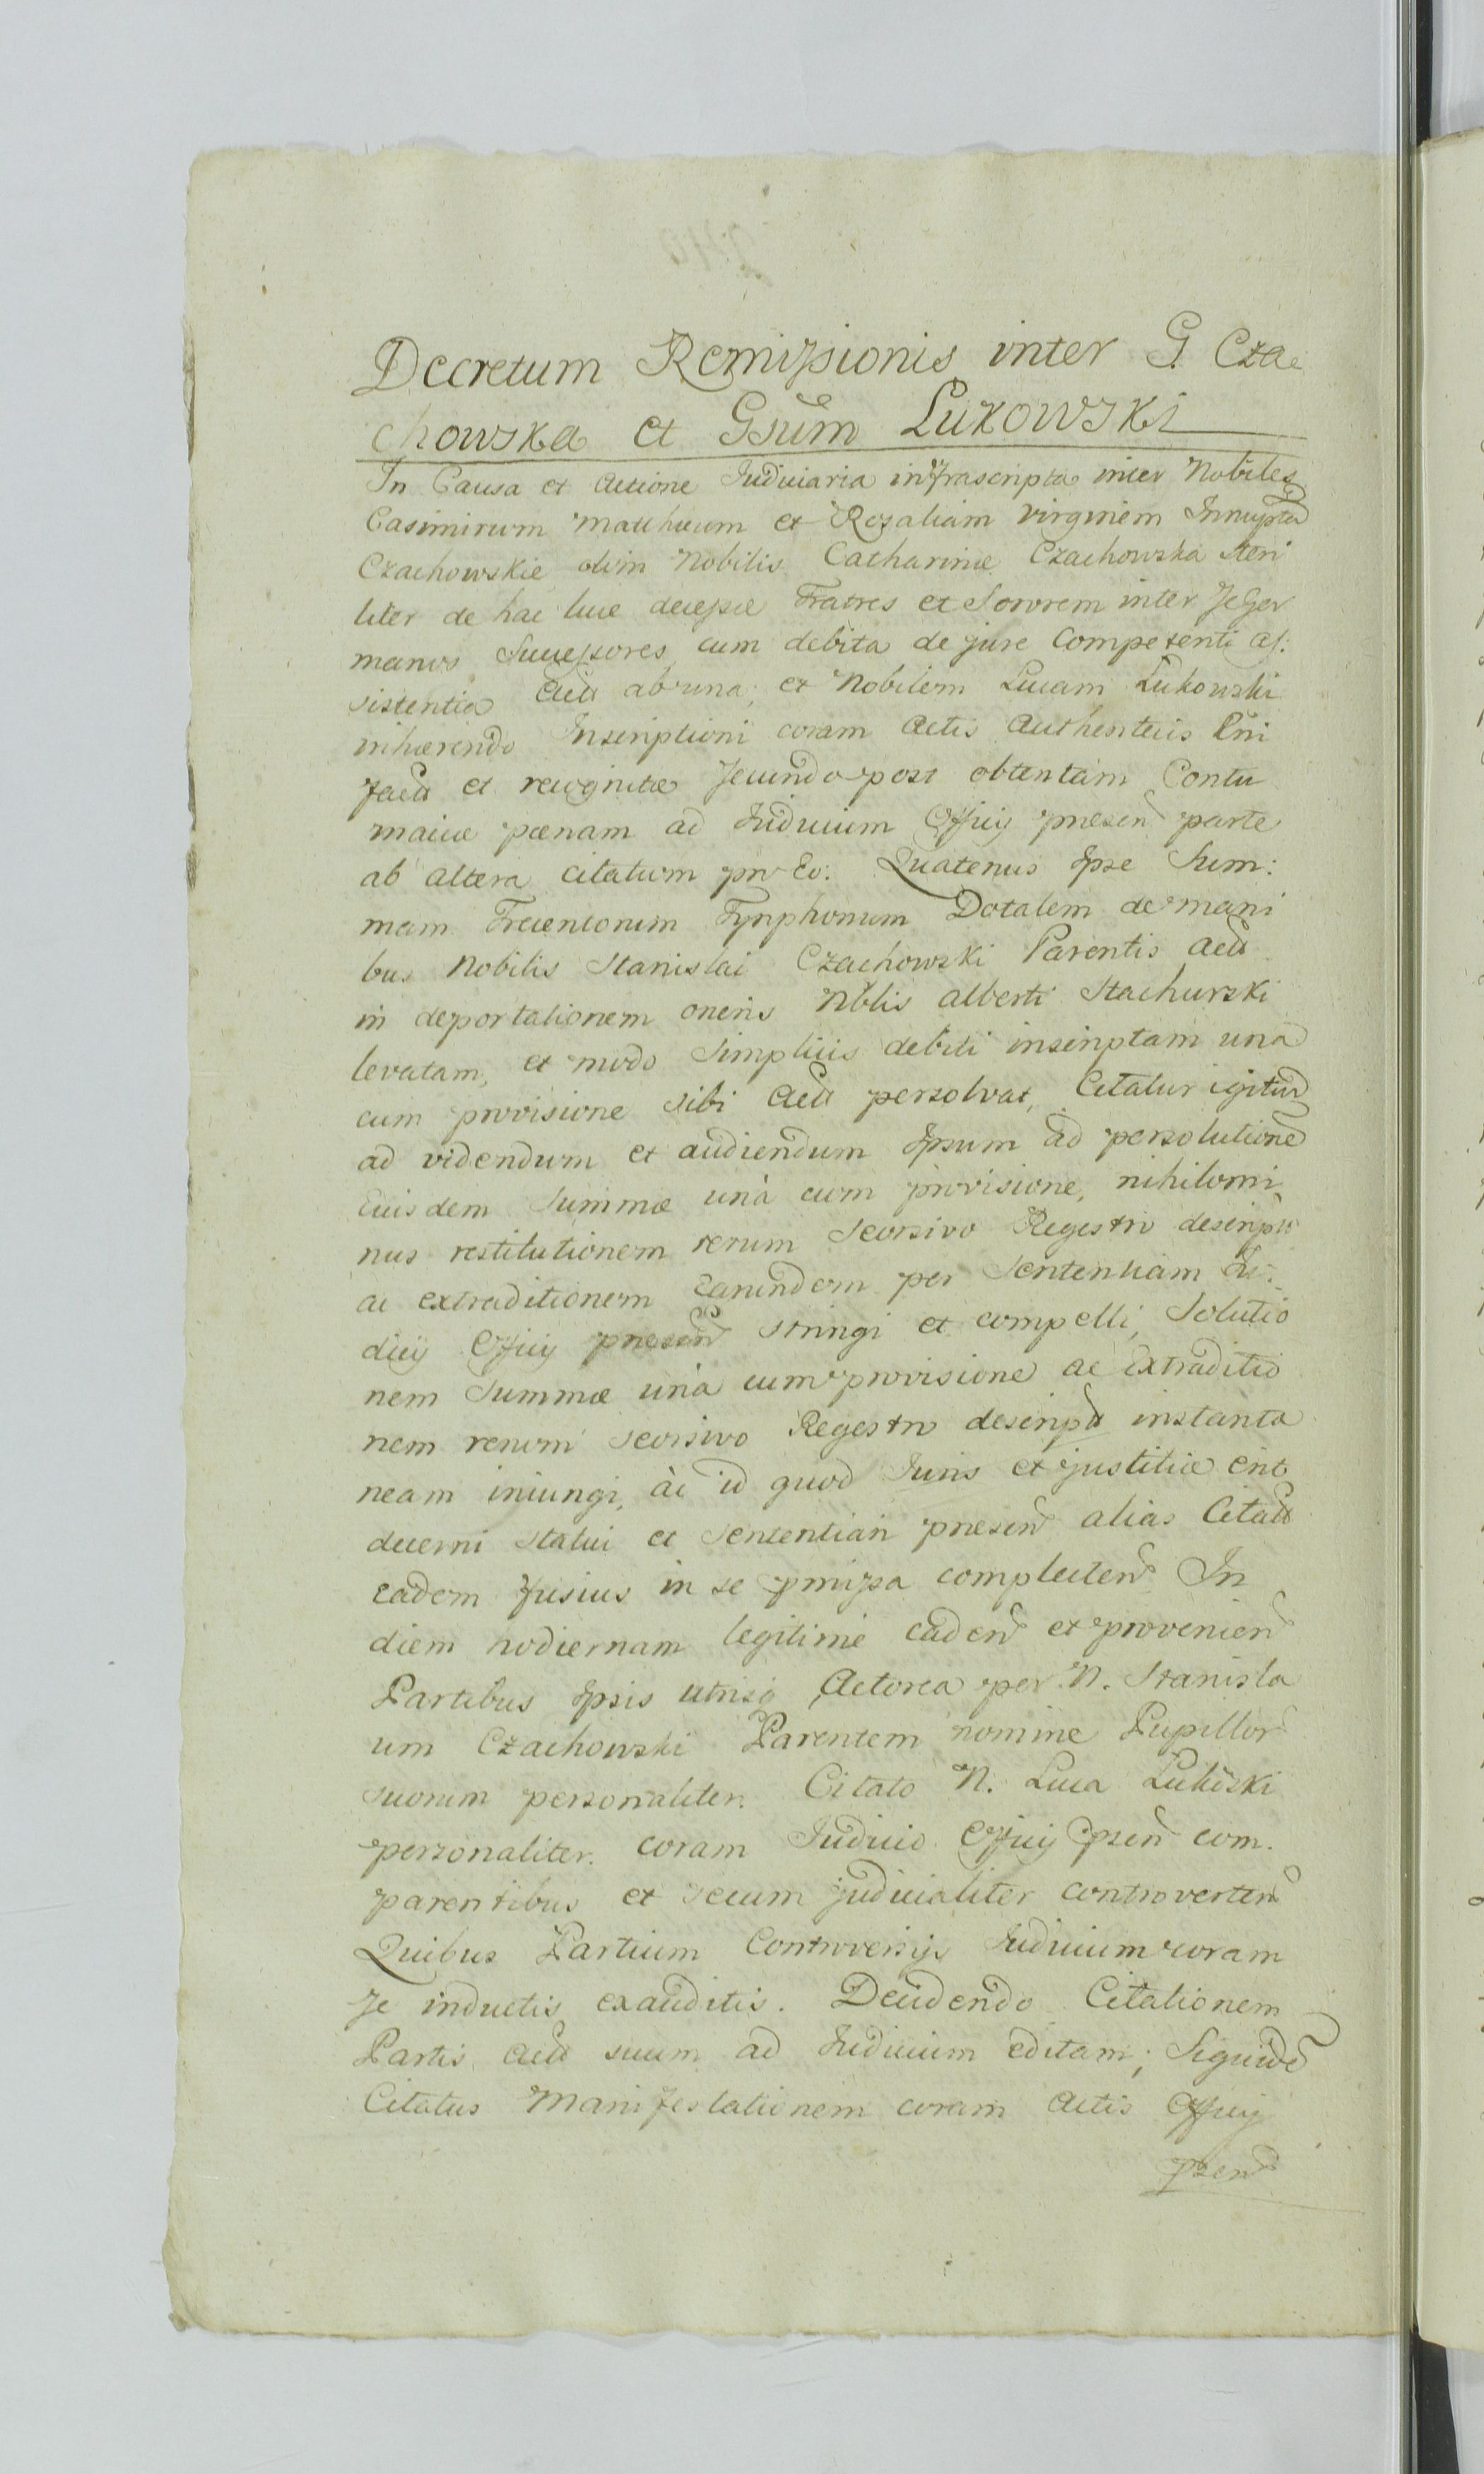 Decretum Remissionis inter G Cza
chowska et Gsum Lukowski
In Causa et Actione Judiciaria infrascripta inter Nobiles
Casimirum Matthæum et Rozaliam Virginem Innupta
Czachowskie olim Nobilis Catharinæ Czachowska Steri
liter de hac luce decessæ Fratres et Sororem inter se Ger
manos Successores cum debita de jure Competenti as:
sistentia Act ab una, et Nobilem Lucam Lukowski
inhærendo Inscriptioni coram Actis Authenticis
fact et recognitæ secundo post obtentam Contu
maciæ pœnam ad Judicium Officij præsen parte
ab altera citatum pro Eo: Quatenus Ipse Sum:
mam Trecentorum Tynphonum Dotalem de mani
bus Nobilis Stanislai Czachowski Parentis Act
in deportationem oneris Nblis Alberti Stachurski
levatam, et modo Simplicis debiti inscriptam una
cum provisione sibi Act persolvat, Citatur igitur
ad videndum et audiendum Ipsum ad persolutione
Eiusdem Summæ unà cum provisione, nihilomi
nus restitutionem rerum Seorsivo Regestro descript
ac extraditionem Earundem per Sententiam Ju:
dicij Officij præsen stringi et compelli, Solutio
nem Summæ unà cum provisione ac Extraditio
nem rerum seorsivo Regestro descript instanta
neam iniungi, àc id quod Juris et justitiæ erit
decerni statui et sententiari præsen alias Citat
eadem fusius in se pmissa complecten In
diem hodiernam legitimè caden et provenien
Partibus Ipsis utrisq Actorea per N. Stanisla
um Czachowski Parentem nomine Pupillor
suorum personaliter. Citato N. Luca Lukoski
personaliter. coram Judicio Officij psen com.
parentibus et secum judicialiter controverten
Quibus Partium Controversijs Judicium coram
se inductis exauditis. Decidendo Citationem
Partis Act suum ad Judicium editam; Siquide
Citatus Manifestationem coram Actis Officij
psen